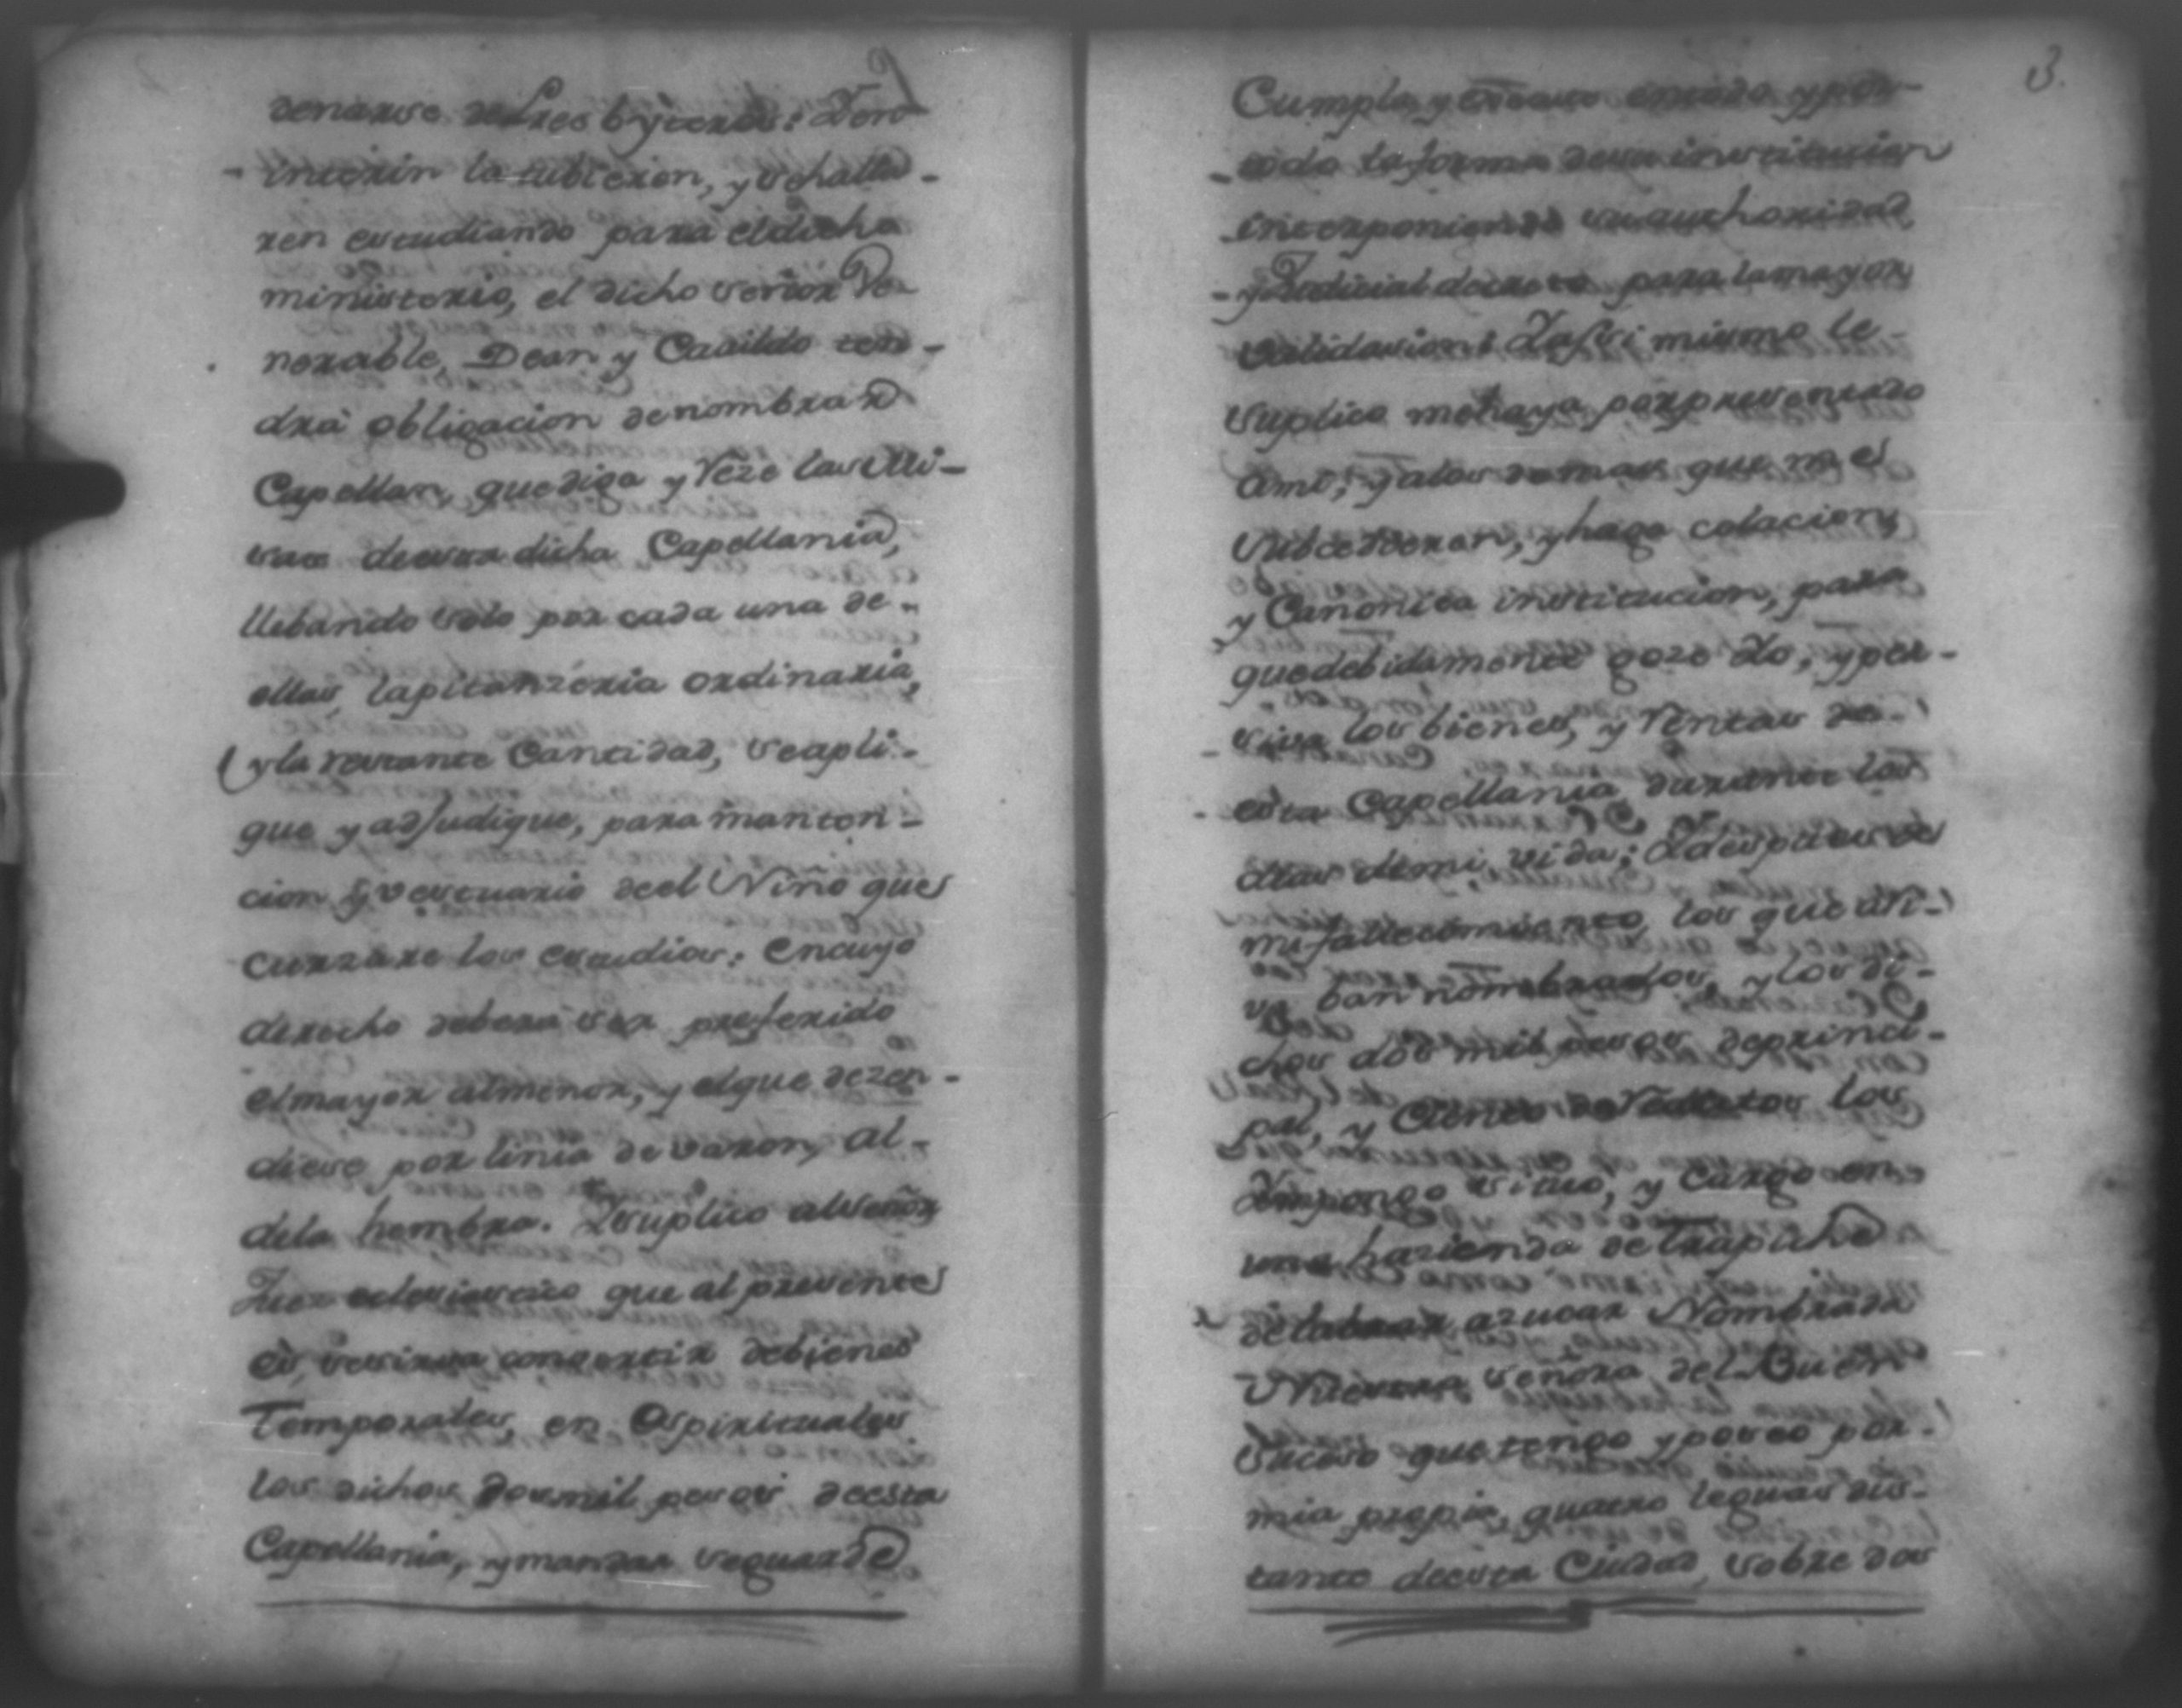 denarse de Presbyteros: Pero
interin la tubieren, y se halla-
ren estudiando para el dicho
ministerio, el dicho señor Ve-
nerable, Dean y Cavildo ten-
drà obligacion de nombrar
Capellan, que diga y reze las Mi-
sas de essa dicha Capellania,
llebando solo por cada una de
ellas, la pitanzeria ordinaria,
y la restante Cantidad, se apli-
que y adjudique, para manten-
cion y vestuario de el Niño que
cursare los estudios: en cuyo
derecho deberà ser preferido
el mayor al menor, y el que dezen-
diese por linia de varon, al
de la hembra. Y suplico al señor
Juez eclesiastico que al presente
es, se sirva convertir de bienes
Temporales, en Espirituales
los dichos dos mil pesos de esta
Capellania, y mandar se guarde
3.
Cumpla y execute en todo y por
todo la forma de su institucion
interponiendo su authoridad,
y Judicial decreto para la mayor
validacion: Y assi mismo le
suplico me haya por presentado
a mi, y a los demas que me
subcedieren, y haga colacion,
y Canonica institucion, para
que debidamente goze Yo, y per-
siva los bienes, y rentas de
esta Capellania durante los
dias de mi vida: Y despues de
mi fallecimiento, los que assi
ban nombrados, y los di-
chos dos mil pesos de princi-
pal, y Ciento de Redictos los
Impongo sitùo, y Cargo en
una hazienda de Trapiche
de labrar azucar Nombrada
Nuestra señora del Buen
suceso que tengo y poseo por
mia propia, quatro leguas dis-
tante de esta Ciudad, sobre dos